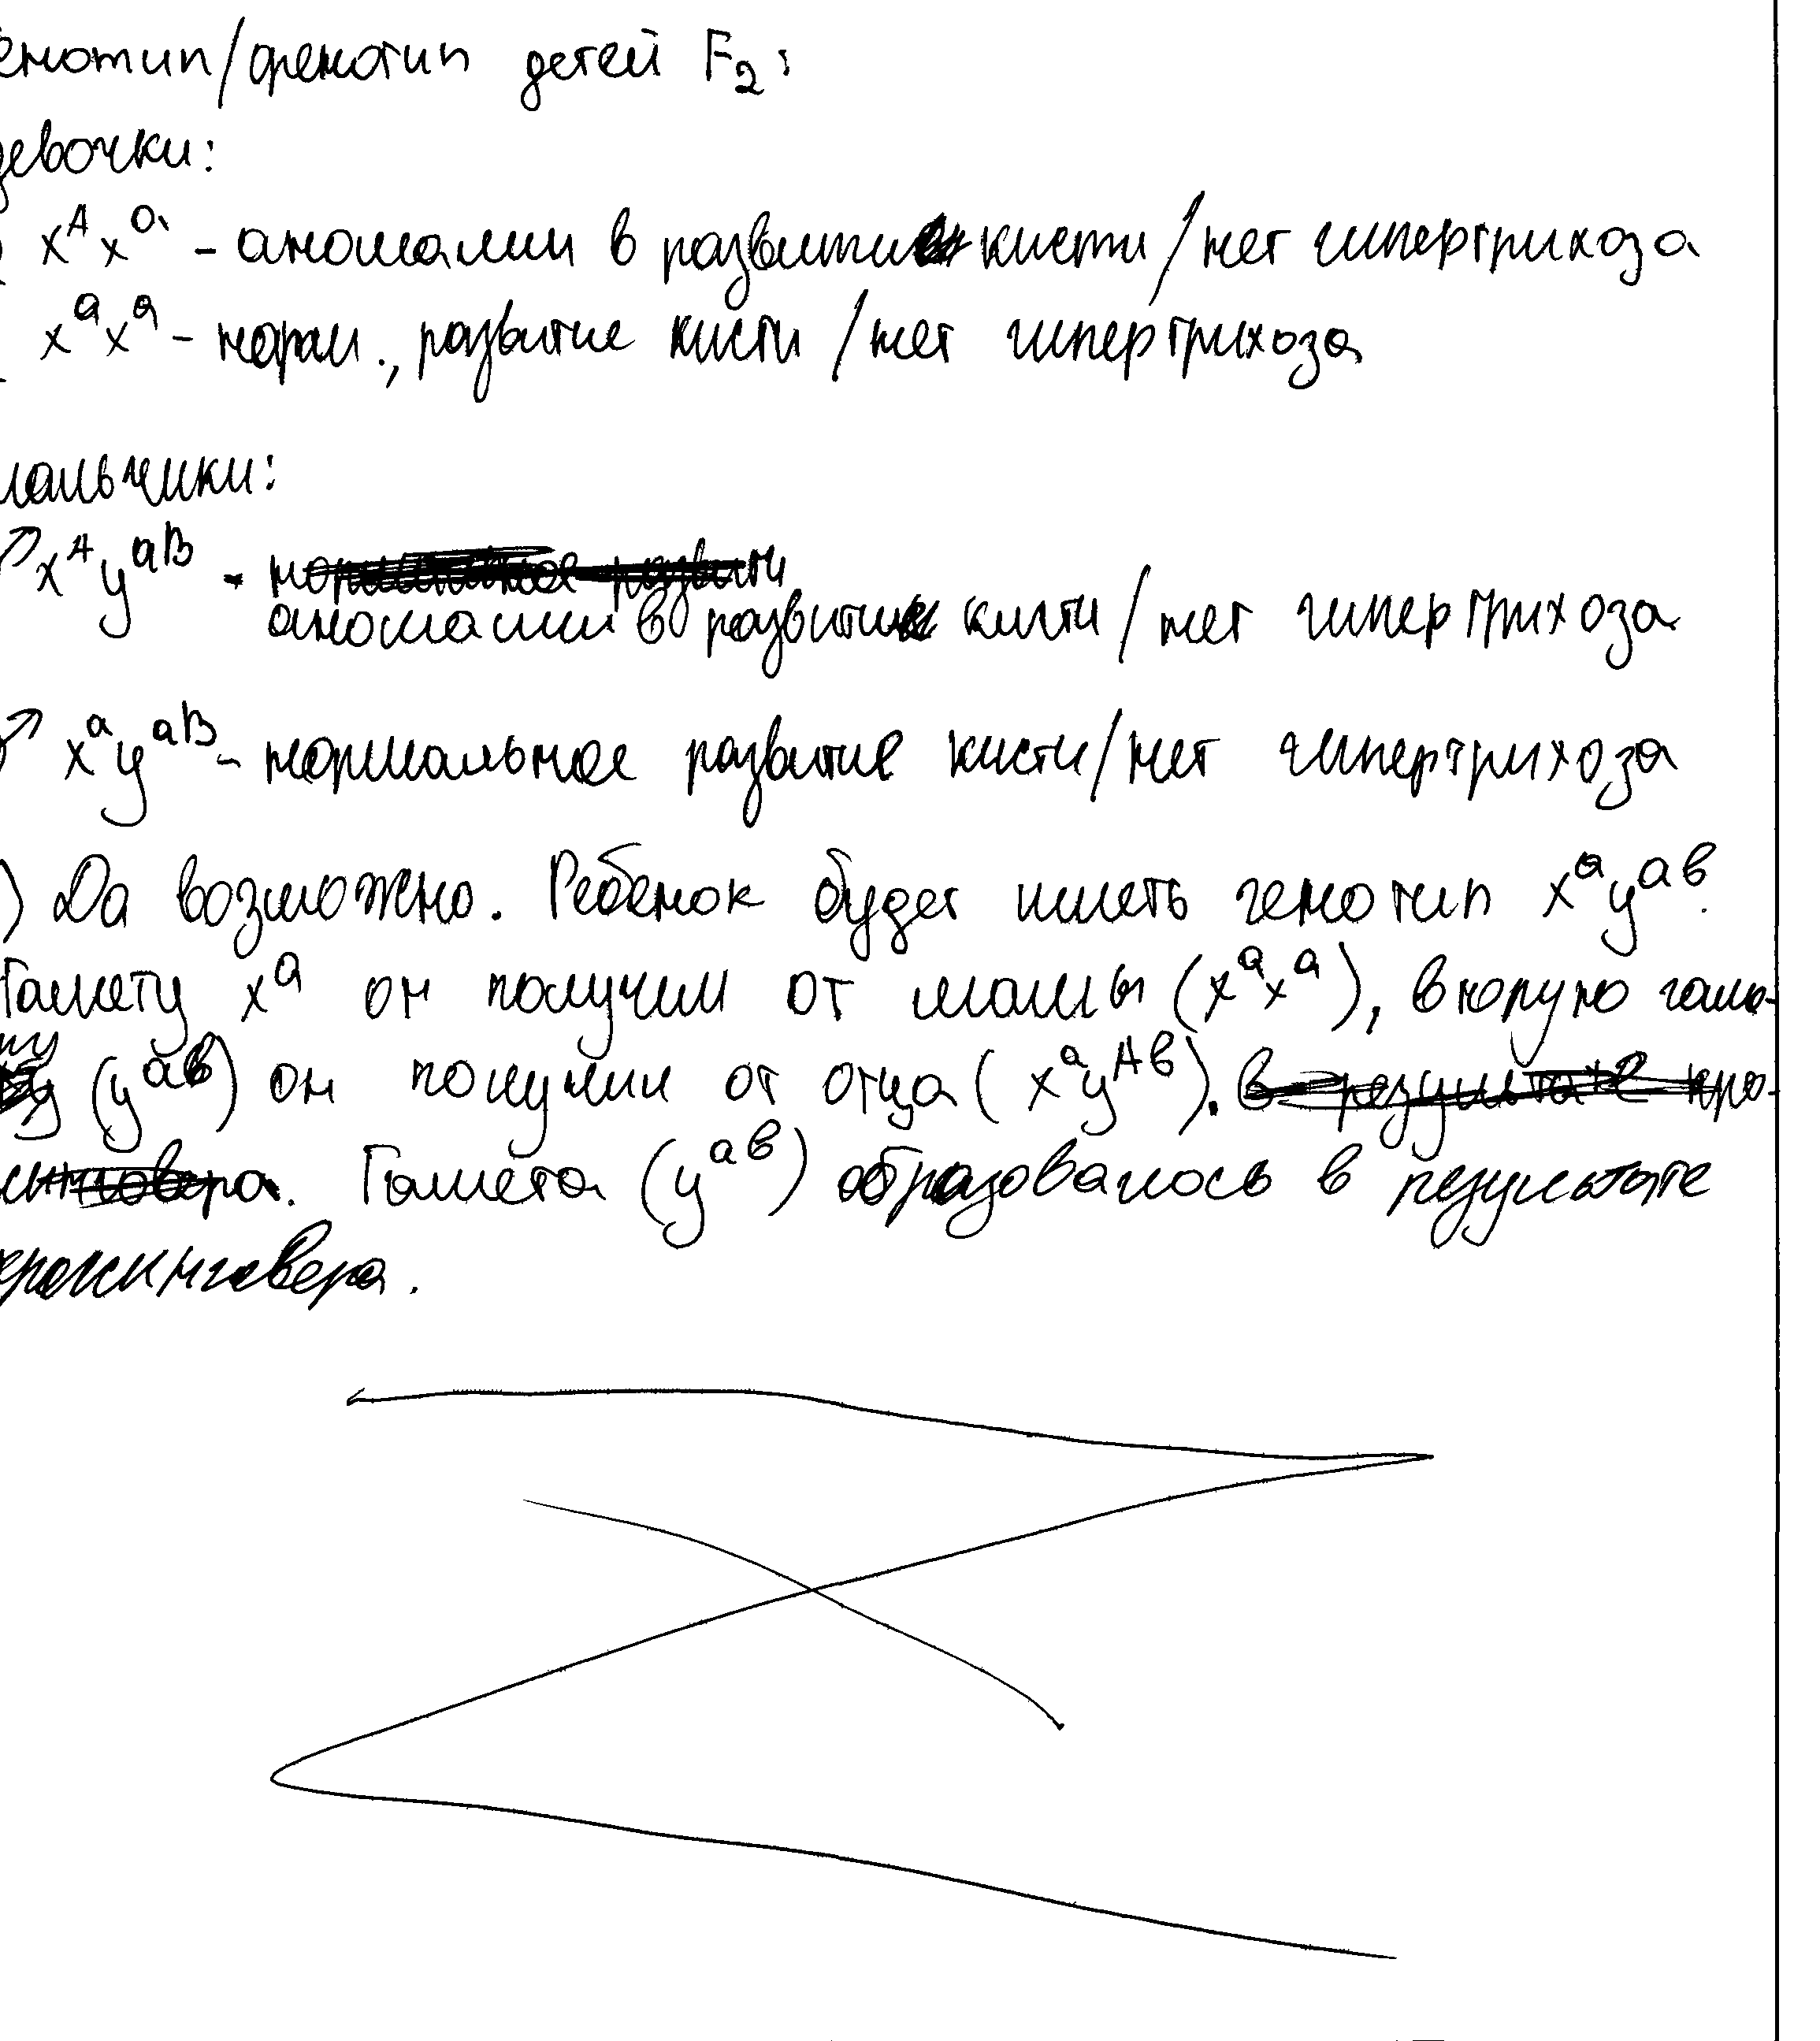 енотип/фенотип детей F₂:
девочки:
xᴬxᵃ - аномалии в развитии кисти / нет гипертрихоза
xᵃxᵃ - норм., развитие кисти / нет гипертрихоза
мальчики:
xᴬyᵃᴮ -
аномалии в развитии кисти / нет гипертрихоза
xᵃyᵃᴮ - нормальное развитие кисти / нет гипертрихоза
) Да возможно. Ребенок будет иметь генотип xᵃyᵃᵇ.
Гамету xᵃ он получил от мамы (xᵃxᵃ), вторую гаме-
ту (yᵃᵇ) он получил от отца (xᵃyᴬᵇ). в результате кро-
ссинговера. Гамета (yᵃᵇ) образовалось в результате
кроссинговера.